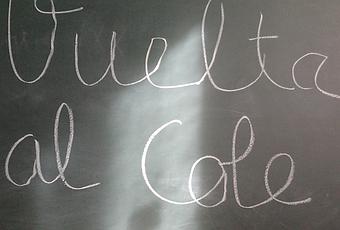 Vuelta
al Cole